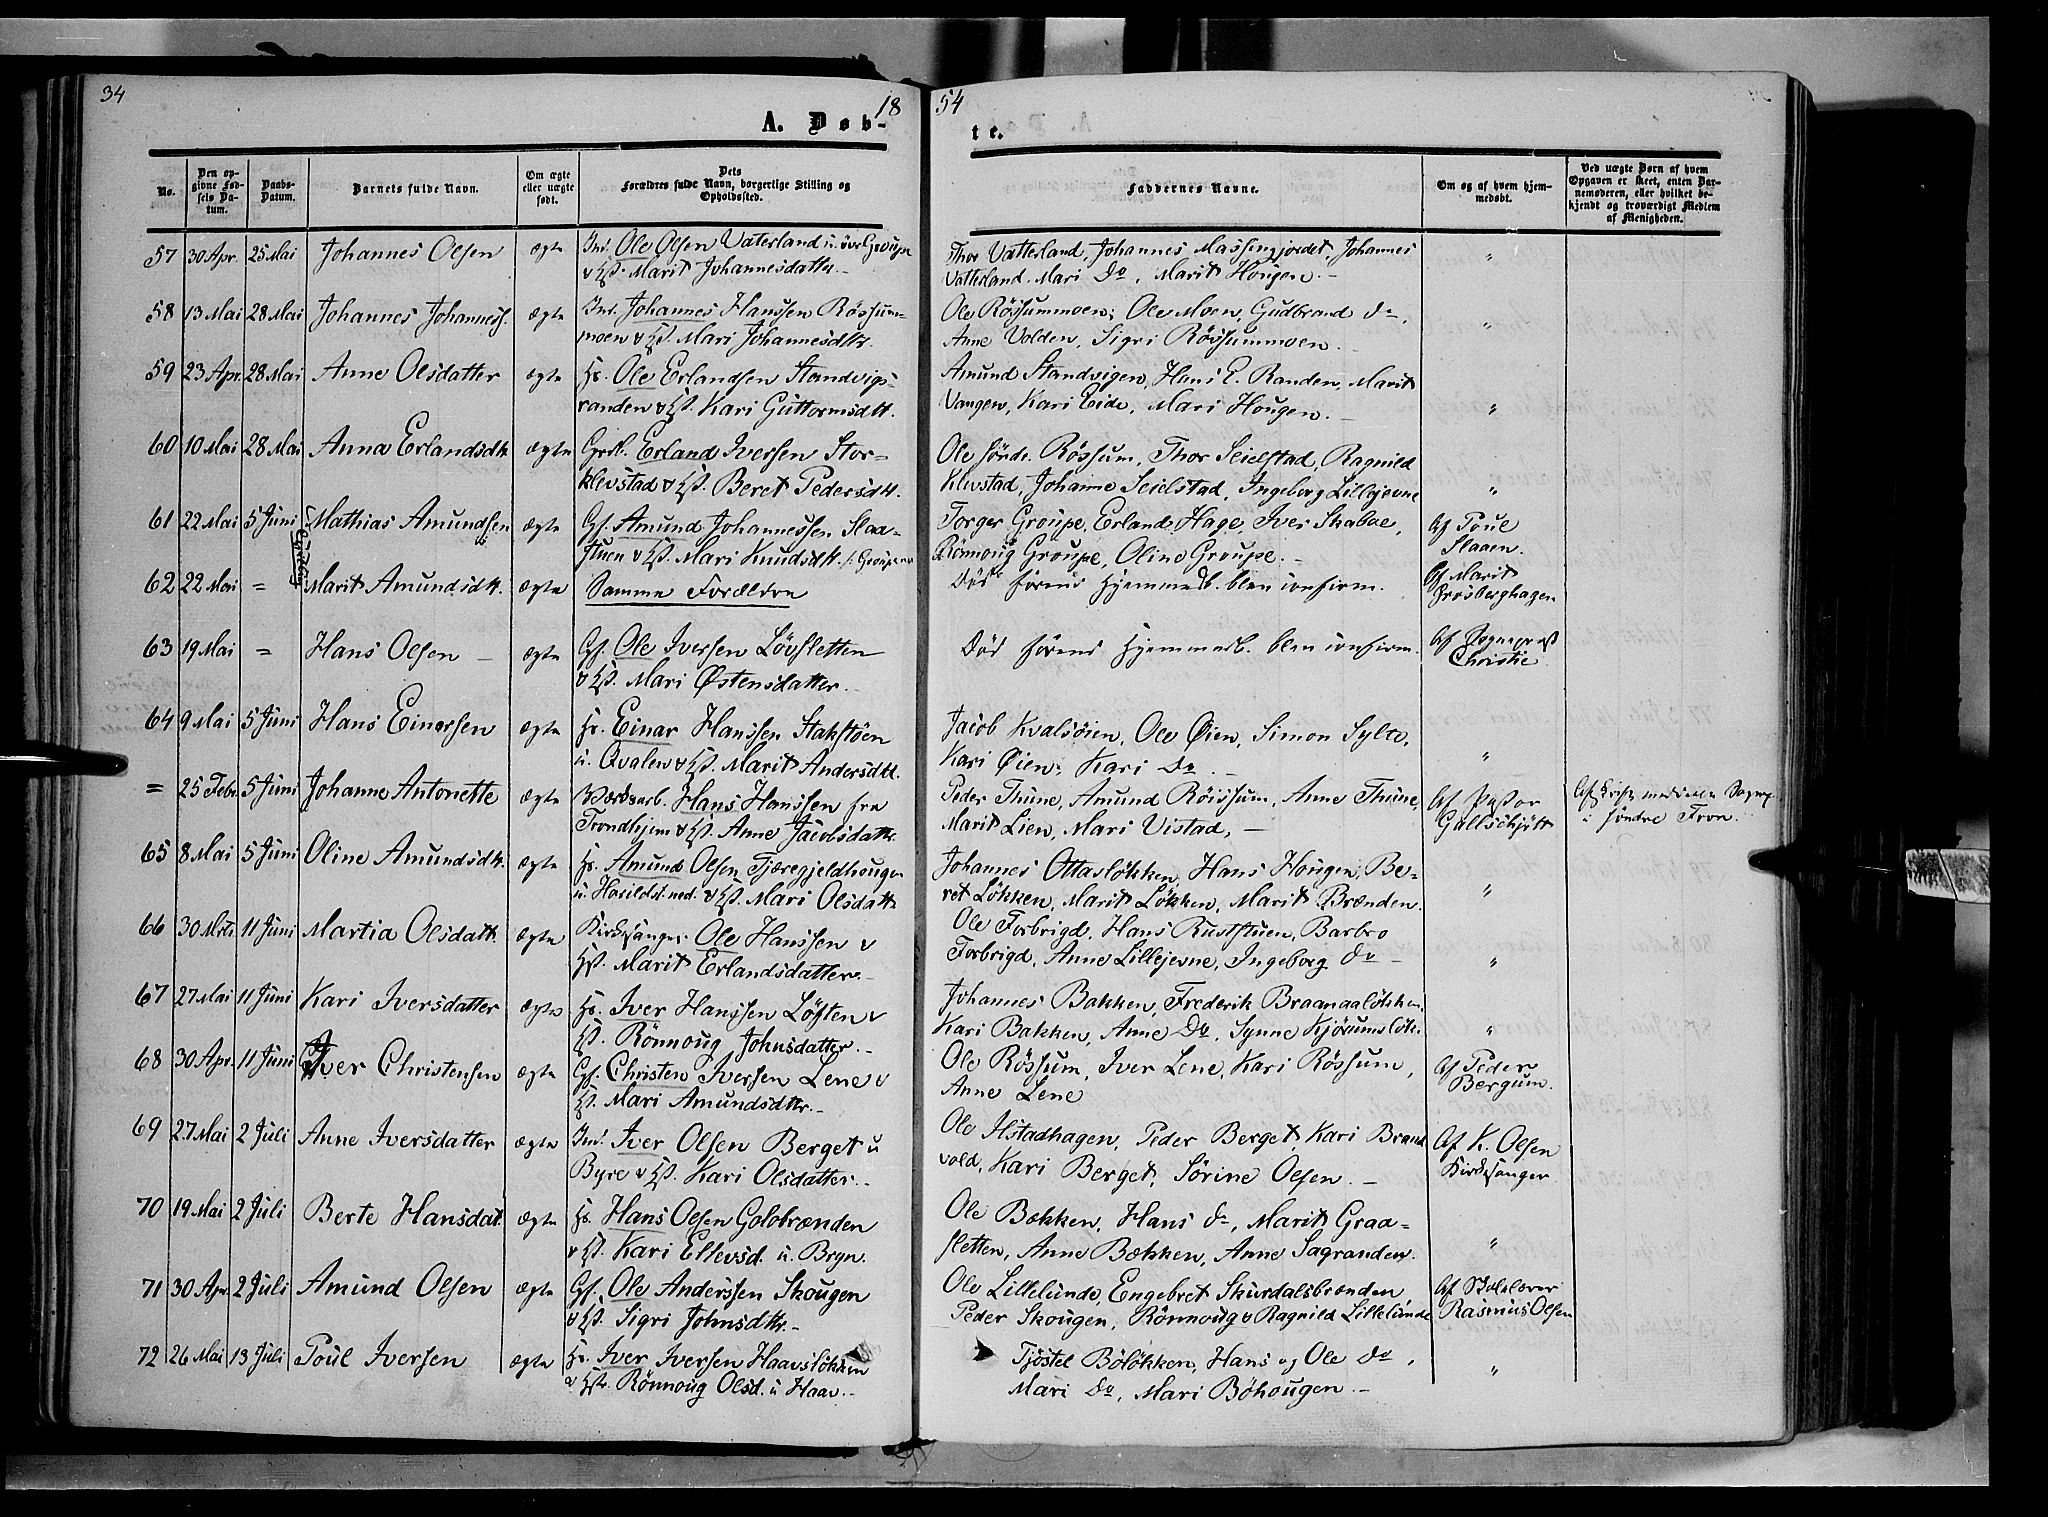 34
18
54
A. Døb-
te.
No.
Den op-
givne Fød-
sels Da-
tum.
Daabs-
Datum.
Barnets fulde Navn.
Om ægte
eller uægte
født.
Dets
Forældres fulde Navn, borgerlige Stilling og
Opholdssted.
Faddernes Navne.
Om og af hvem hjem-
medøbt.
Ved uægte Børn af hvem
Opgaven er skeet, enten Bar-
nemoderen, eller hvilket be-
kjendt og troværdigt Medlem
af Menigheden.
57 30 Apr. 25 Mai Johannes Olsen ægte Ind. Ole Olsen Vaterland u. övr Groupe
Marit Johannesdatter.
Thor Vatterland, Johannes Massingjordet, Johannes
Vatterland. Mari Do, Marit Hougen. "
58 13 Mai 28 Mai Johannes Johanness. ægte Ind. Johannes Hanssen Rössum-
moen Mari Johannesdtr.
Ole Rössummoen; Ole Moen, Gudbrand do,
Anne Volden, Sigri Rössummoen. "
59 23 Apr. 28 Mai Anne Olsdatter ægte Hs. Ole Erlandsen Standvigs-
randen Kari Guttormsdtt.
Amund Standvigen, Hans E. Randen, Marit
Vangen, Kari Eide, Mari Hougen. "
60 10 Mai 28 Mai Anna Erlandsdtr ægte Grdb. Erland Iversen Stor-
klevstad Beret Pedersdtt.
Ole söndr. Røssum, Thor Seielstad, Ragnild
Klevstad, Johanne Seielstad, Ingeborg Lillejevne "
61 22 Mai 5 Juni Mathias Amundsen ægte Gf. Amund Johannessen Slaa-
stuen Mari Knudsdtt.
Torger Groupe, Erland Hage, Iver Skaboe,
Rönnoug Groupe, Oline Groupe.
Af Poul
Slaaen.
62 22 Mai = Marit Amundsdtt. ægte Samme Forældre
Död förend Hjemmedb. blev confirm.
Af Marit
Frösberghagen
63 19 Mai = Hans Olsen ægte Gf. Ole Iversen Lövsletten
Mari Østensdatter.
Död förend Hjemmedb. blev confirm.
Af Sognepræst
Christie
64 9 Mai 5 Juni Hans Einersen ægte Hs. Einar Hanssen Stakstöen
u. Qvalen Marit Andersdtt.
Jacob Kvalsöien, Ole Øien, Simon Sylte,
Kari Øien, Kari Do. "
= 25 Febr. 5 Juni Johanne Antonette ægte Hans Hanssen fra
Trondhjem Anne Jacobsdatter
Peder Thune, Amund Röissum, Anne Thune,
Marit Lien, Mari Vistad,
Af Pastor
Gallschjött
i söndre Fron.
65 8 Mai 5 Juni Oline Amundsdtr. ægte Hs. Amund Olsen Tjæregjeldhougen
u. Harildst. ned. Mari Olsdatter
Johannes Ottaslökken, Hans Hougen, Be-
ret Lökken, Marit Lökken, Marit Brænden. "
66 30 Mrts. 11 Juni Martia Olsdatt. ægte Kirkesanger Ole Hanssen
Marit Erlandsdatter.
Ole Forbrigd, Hans Ruststuen, Barbro
Forbrigd, Anne Lillejevne, Ingeborg do "
67 27 Mai 11 Juni Kari Iversdatter ægte Hs. Iver Hanssen Löften
Rönnoug Johnsdatter.
Johannes Bakken, Frederik Braanaalökken
Kari Bakken, Anne Do, Synne Kjörumslök. "
68 30 Apr. 11 Juni Iver Christensen ægte Gf. Christen Iversen Lene
Mari Amundsdtr.
Ole Rössum, Iver Lene, Kari Rössum,
Anne Lene
Af Peder
Bergum.
69 27 Mai 2 Juli Anne Iversdatter ægte Ind. Iver Olsen Berget u
Byre Kari Olsdatter.
Ole Ilstadhagen, Peder Berget, Kari Brand
vold, Kari Berget, Sörine Olsen.
Af K. Olsen
Kirkesanger
70 19 Mai 2 Juli Berte Hansdat. ægte Hs. Hans Olsen Golobrænden
Kari Ellevsd. u. Bryn.
Ole Bækken, Hans do, Marit Graa-
sletten, Anne Bækken, Anne Sagranden. "
71 30 Apr. 2 Juli Amund Olsen ægte Gf. Ole Anderssen Skougen
Sigri Johnsdtr.
Ole Lillelunde, Engebret Skurdalsbrænden
Peder Skougen, Rönnoug Ragnild Lillelunde
Af Skolelærer
Rasmus Olsen
72 26 Mai 13 Juli Poul Iversen ægte Hs. Iver Iversen Haavslökken
Rönnoug Olsd. u Haav.
Tjöstel Bölökken, Hans og Ole do,
Mari Do, Mari Böhougen. "